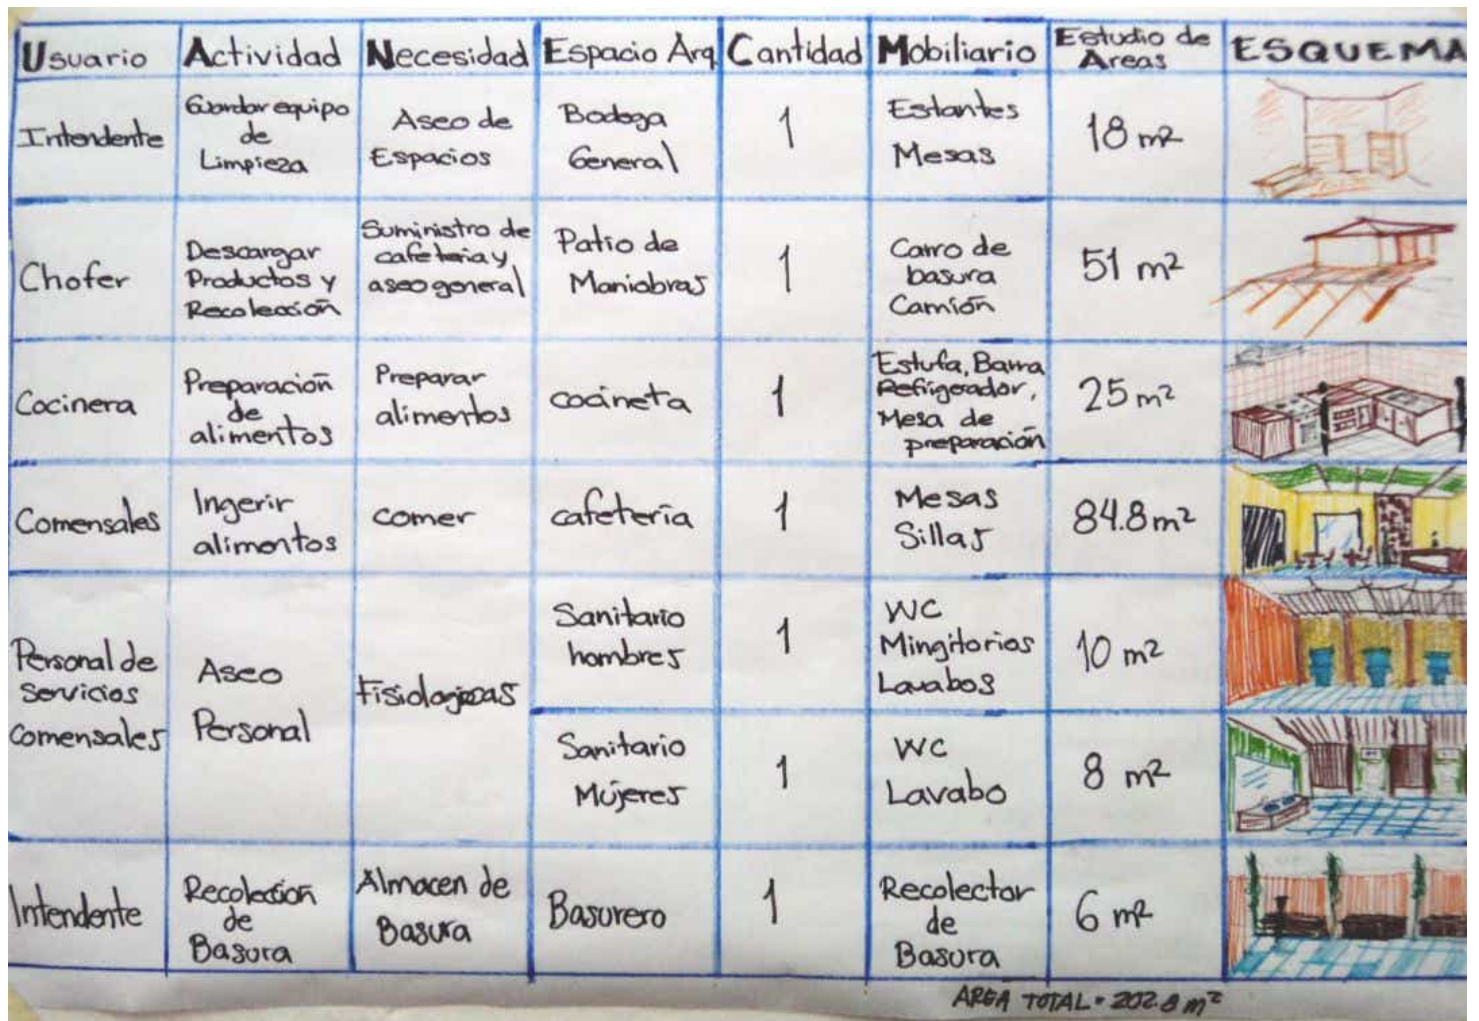 Usuario
Actividad
Necesidad
Espacio Arq.
Cantidad
Mobiliario
Estudio de
Áreas
ESQUEMA
Intendente
Guardar equipo
de
Limpieza
Aseo de
Espacios
Bodega
General
1
Estantes
Mesas
18 m²
Chofer
Descargar
Productos y
Recolección
Suministro de
cafetería y
aseo general
Patio de
Maniobras
1
Carro de
basura
Camión
51 m²
Cocinera
Preparación
de
alimentos
Preparar
alimentos
cocineta
1
Estufa, Barra
Refrigerador,
Mesa de
preparación
25 m²
Comensales
Ingerir
alimentos
comer
cafetería
1
Mesas
Sillas
84.8 m²
Personal de
Servicios
Comensales
Aseo
Personal
Fisiologicas
Sanitario
hombres
1
WC
Mingitorios
Lavabos
10 m²
Sanitario
Mujeres
1
WC
Lavabo
8 m²
Intendente
Recolección
de
Basura
Almacen de
Basura
Basurero
1
Recolector
de
Basura
6 m²
AREA TOTAL = 202.8 m²